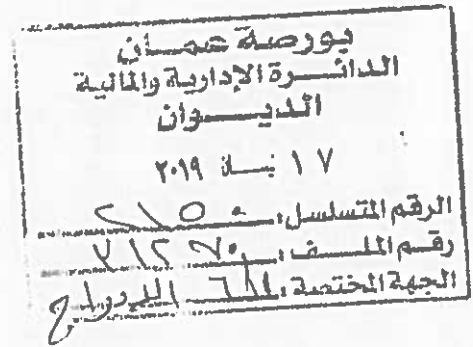 بورصة عمان
الدائرة الإدارية والمالية
الديوان
١٧ نيسان ٢٠١٩
الرقم المتسلسل: ٢١٥٠
رقم الملف:
الجهة المختصة: